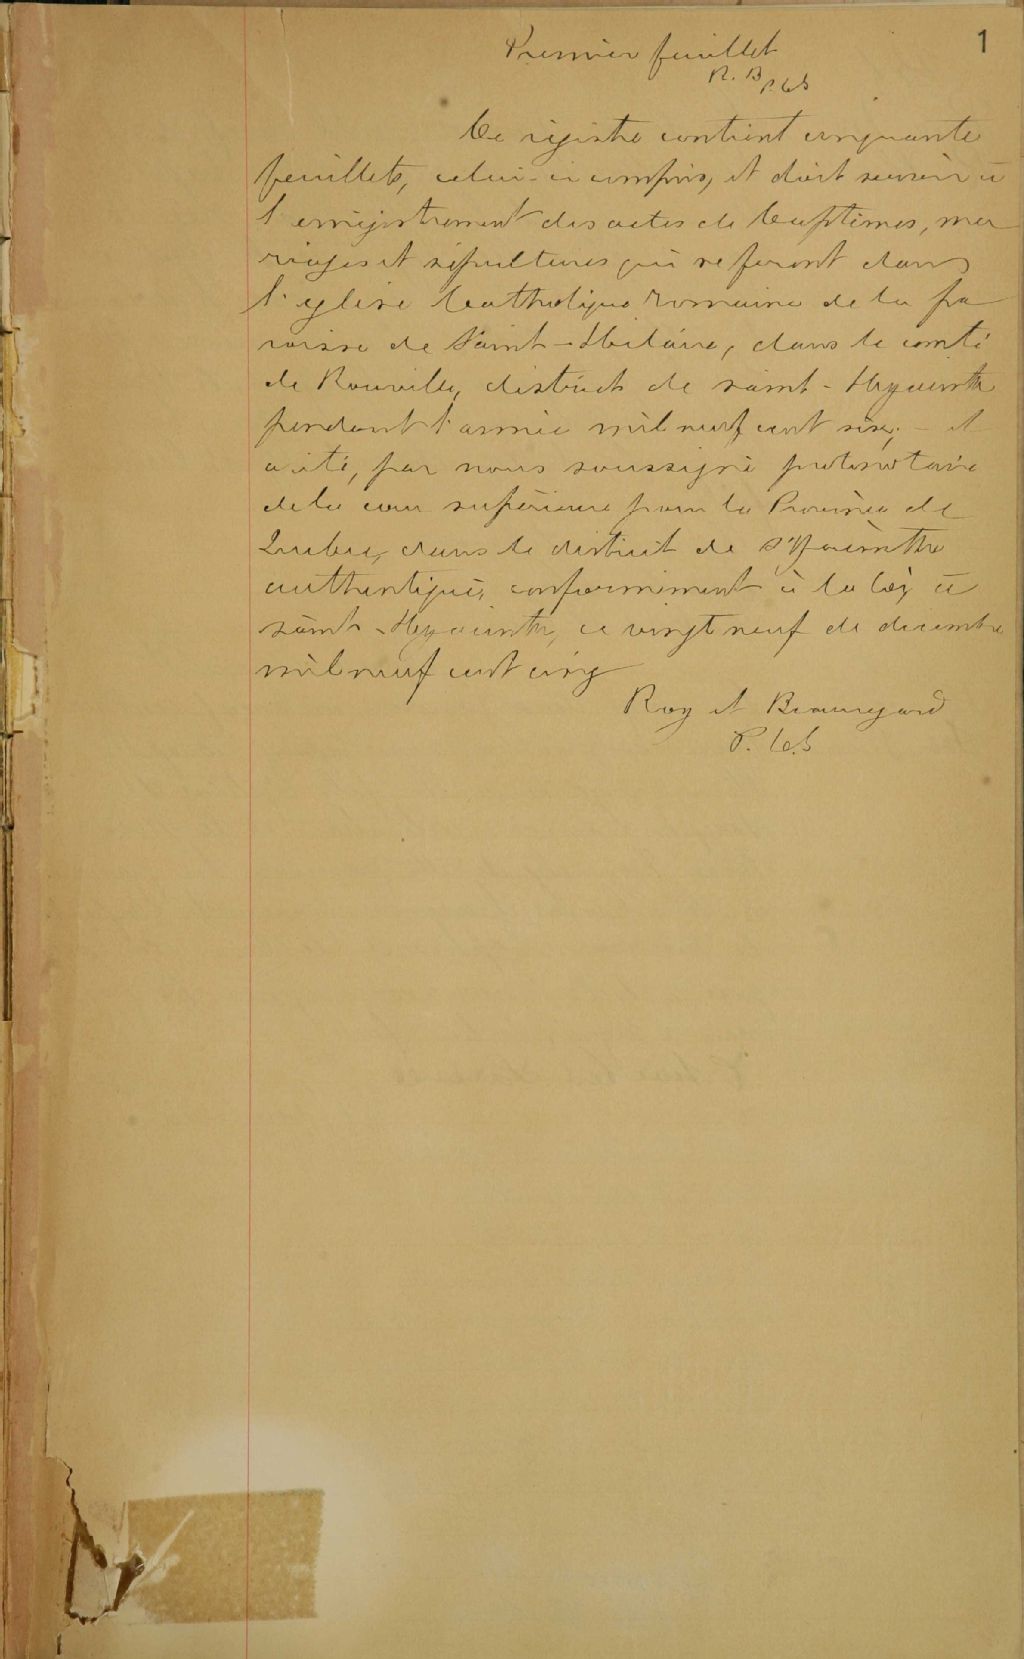 1
Premier feuillet
R. B P. C. S
Ce registre contient cinquante
feuillets, celui-ci compris, et doit servir à
l'enregistrement des actes de Baptêmes, ma
riages et sépultures qui se feront dans
l'église Catholique romaine de la pa
roisse de Saint-Hilaire, dans le comté
de Rouville, district de saint-Hyacinthe
pendant l'année mil neuf cent six; - et
a été, par nous soussigné protonotaire
de la cour supérieure pour la Province de
Québec, dans le district de St Hyacinthe
authentiqué, conformément à la loi, à
saint-Hyacinthe, ce vingt neuf de décembre
mil neuf cent cinq
Roy et Beauregard
P. C. S